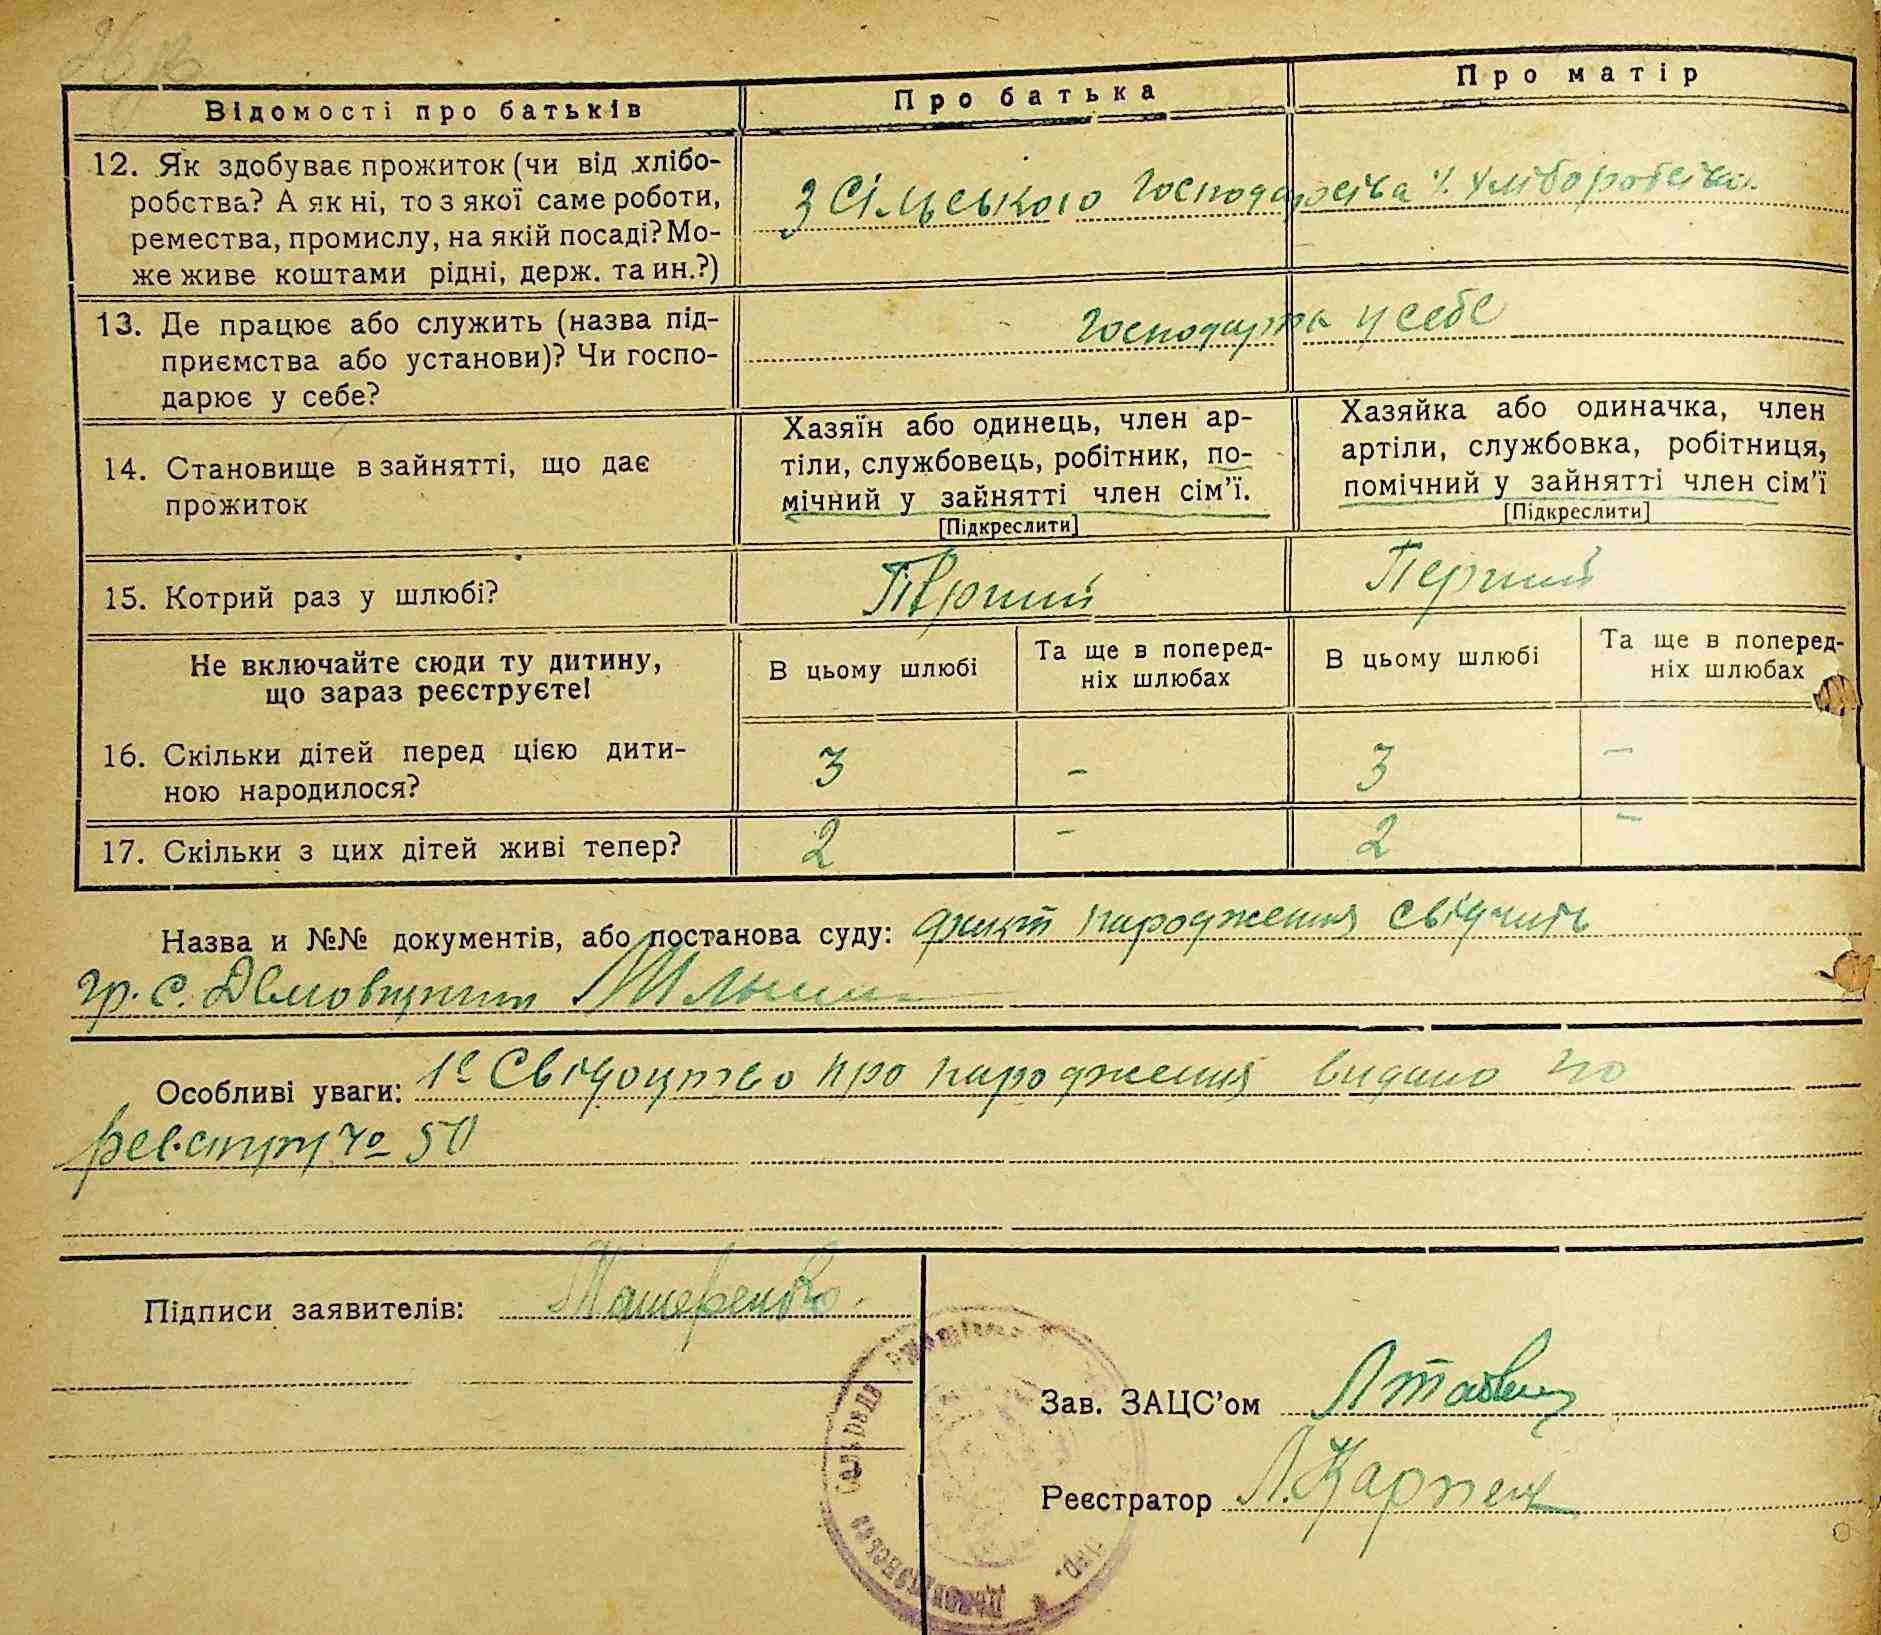 Відомості про батьків
Про батька
Про матір
12. Як здобуває прожиток (чи від хлібо-
робства? А як ні, то з якої саме роботи,
ремества, промислу, на якій посаді? Мо-
же живе коштами рідні, держ. та ин.?)
З Сільського господарства
13. Де працює або служить (назва під-
приємства або установи)? Чи госпо-
дарює у себе?
у себе
14. Становище в зайнятті, що дає
прожиток
Хазяїн або одинець, член ар-
тіли, службовець, робітник, по-
мічний у зайнятті член сім'ї.
[Підкреслити]
Хазяйка або одиначка, член
артіли, службовка, робітниця,
помічний у зайнятті член сім'ї
[Підкреслити]
15. Котрий раз у шлюбі?
Перший
Перший
Не включайте сюди ту дитину,
що зараз реєструєте!
В цьому шлюбі
Та ще в поперед-
ніх шлюбах
В цьому шлюбі
Та ще в поперед-
ніх шлюбах
16. Скільки дітей перед цією дити-
ною народилося?
3
-
3
-
17. Скільки з цих дітей живі тепер?
2
-
2
-
Назва и №№ документів, або постанова суду: факт народження свідчить
гр. с.
Особливі уваги: Свідоцтво про народження видано по
№ 50
Підписи заявителів:
Зав. ЗАЦС'ом
Реєстратор Л. Карпен
Сільрада